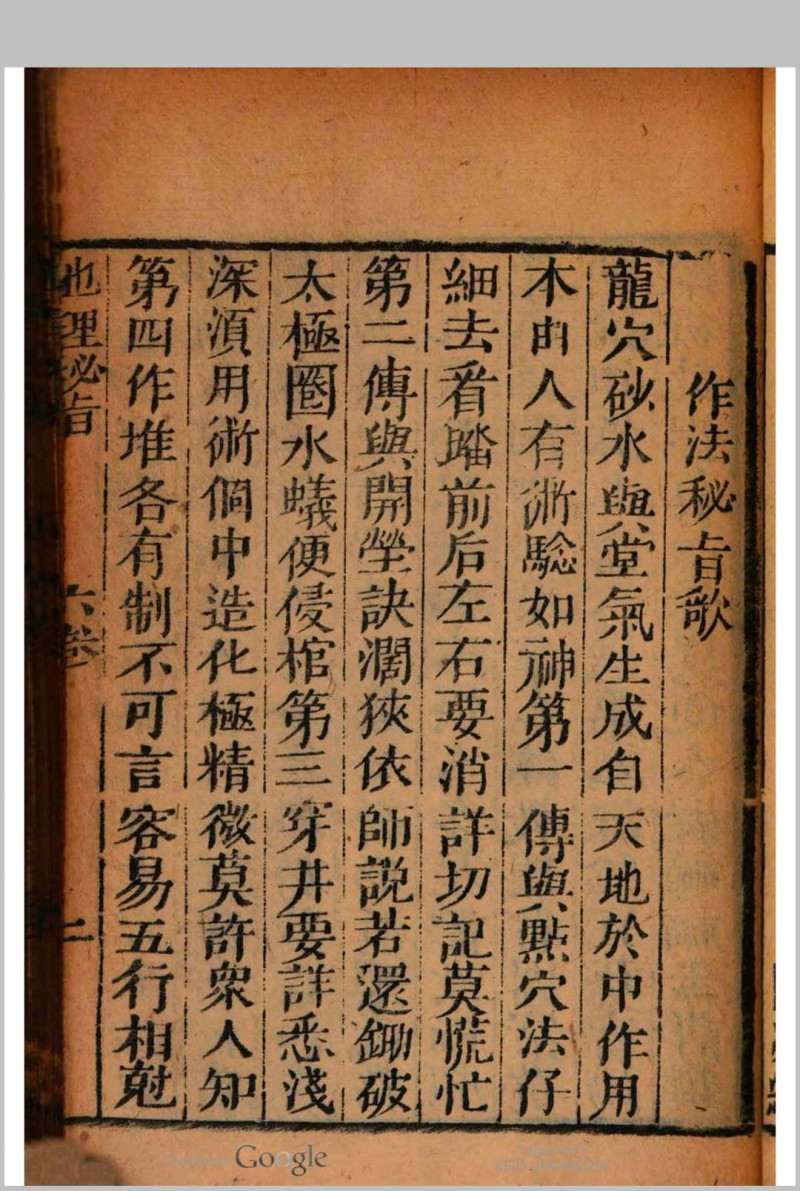 作法秘旨歌
龍穴砂水與堂氣生成自天地於中作用
本由人有術驗如神第一傳與㸃穴法仔
細去看踏前后左右要消詳切記莫慌忙
第二傳與開塋訣濶狹依師說若還鋤破
太極圈水蟻便侵棺第三穿井要詳悉淺
深須用術個中造化極精微莫許衆人知
第四作堆各有制不可言容易五行相尅
地理秘旨
六卷
二
Google